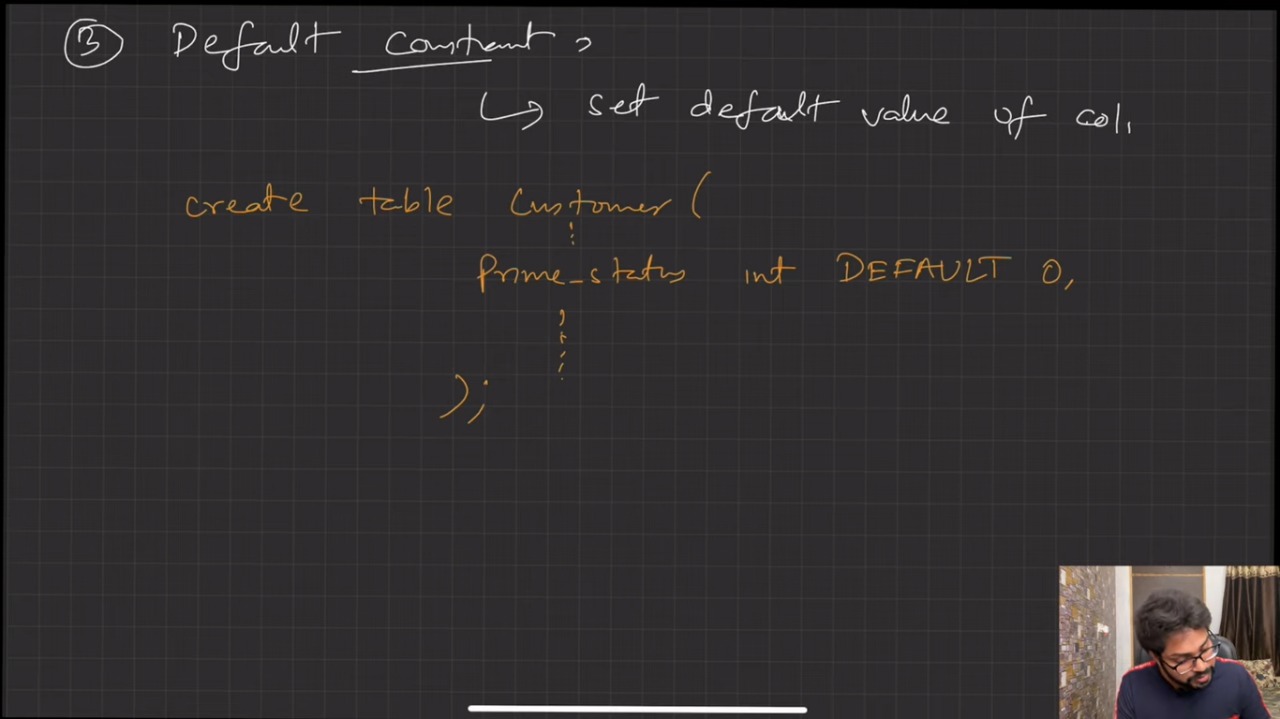 ③ Default constant,
↳ set default value of col.
create table Customer (
Prime_status int DEFAULT 0,
);